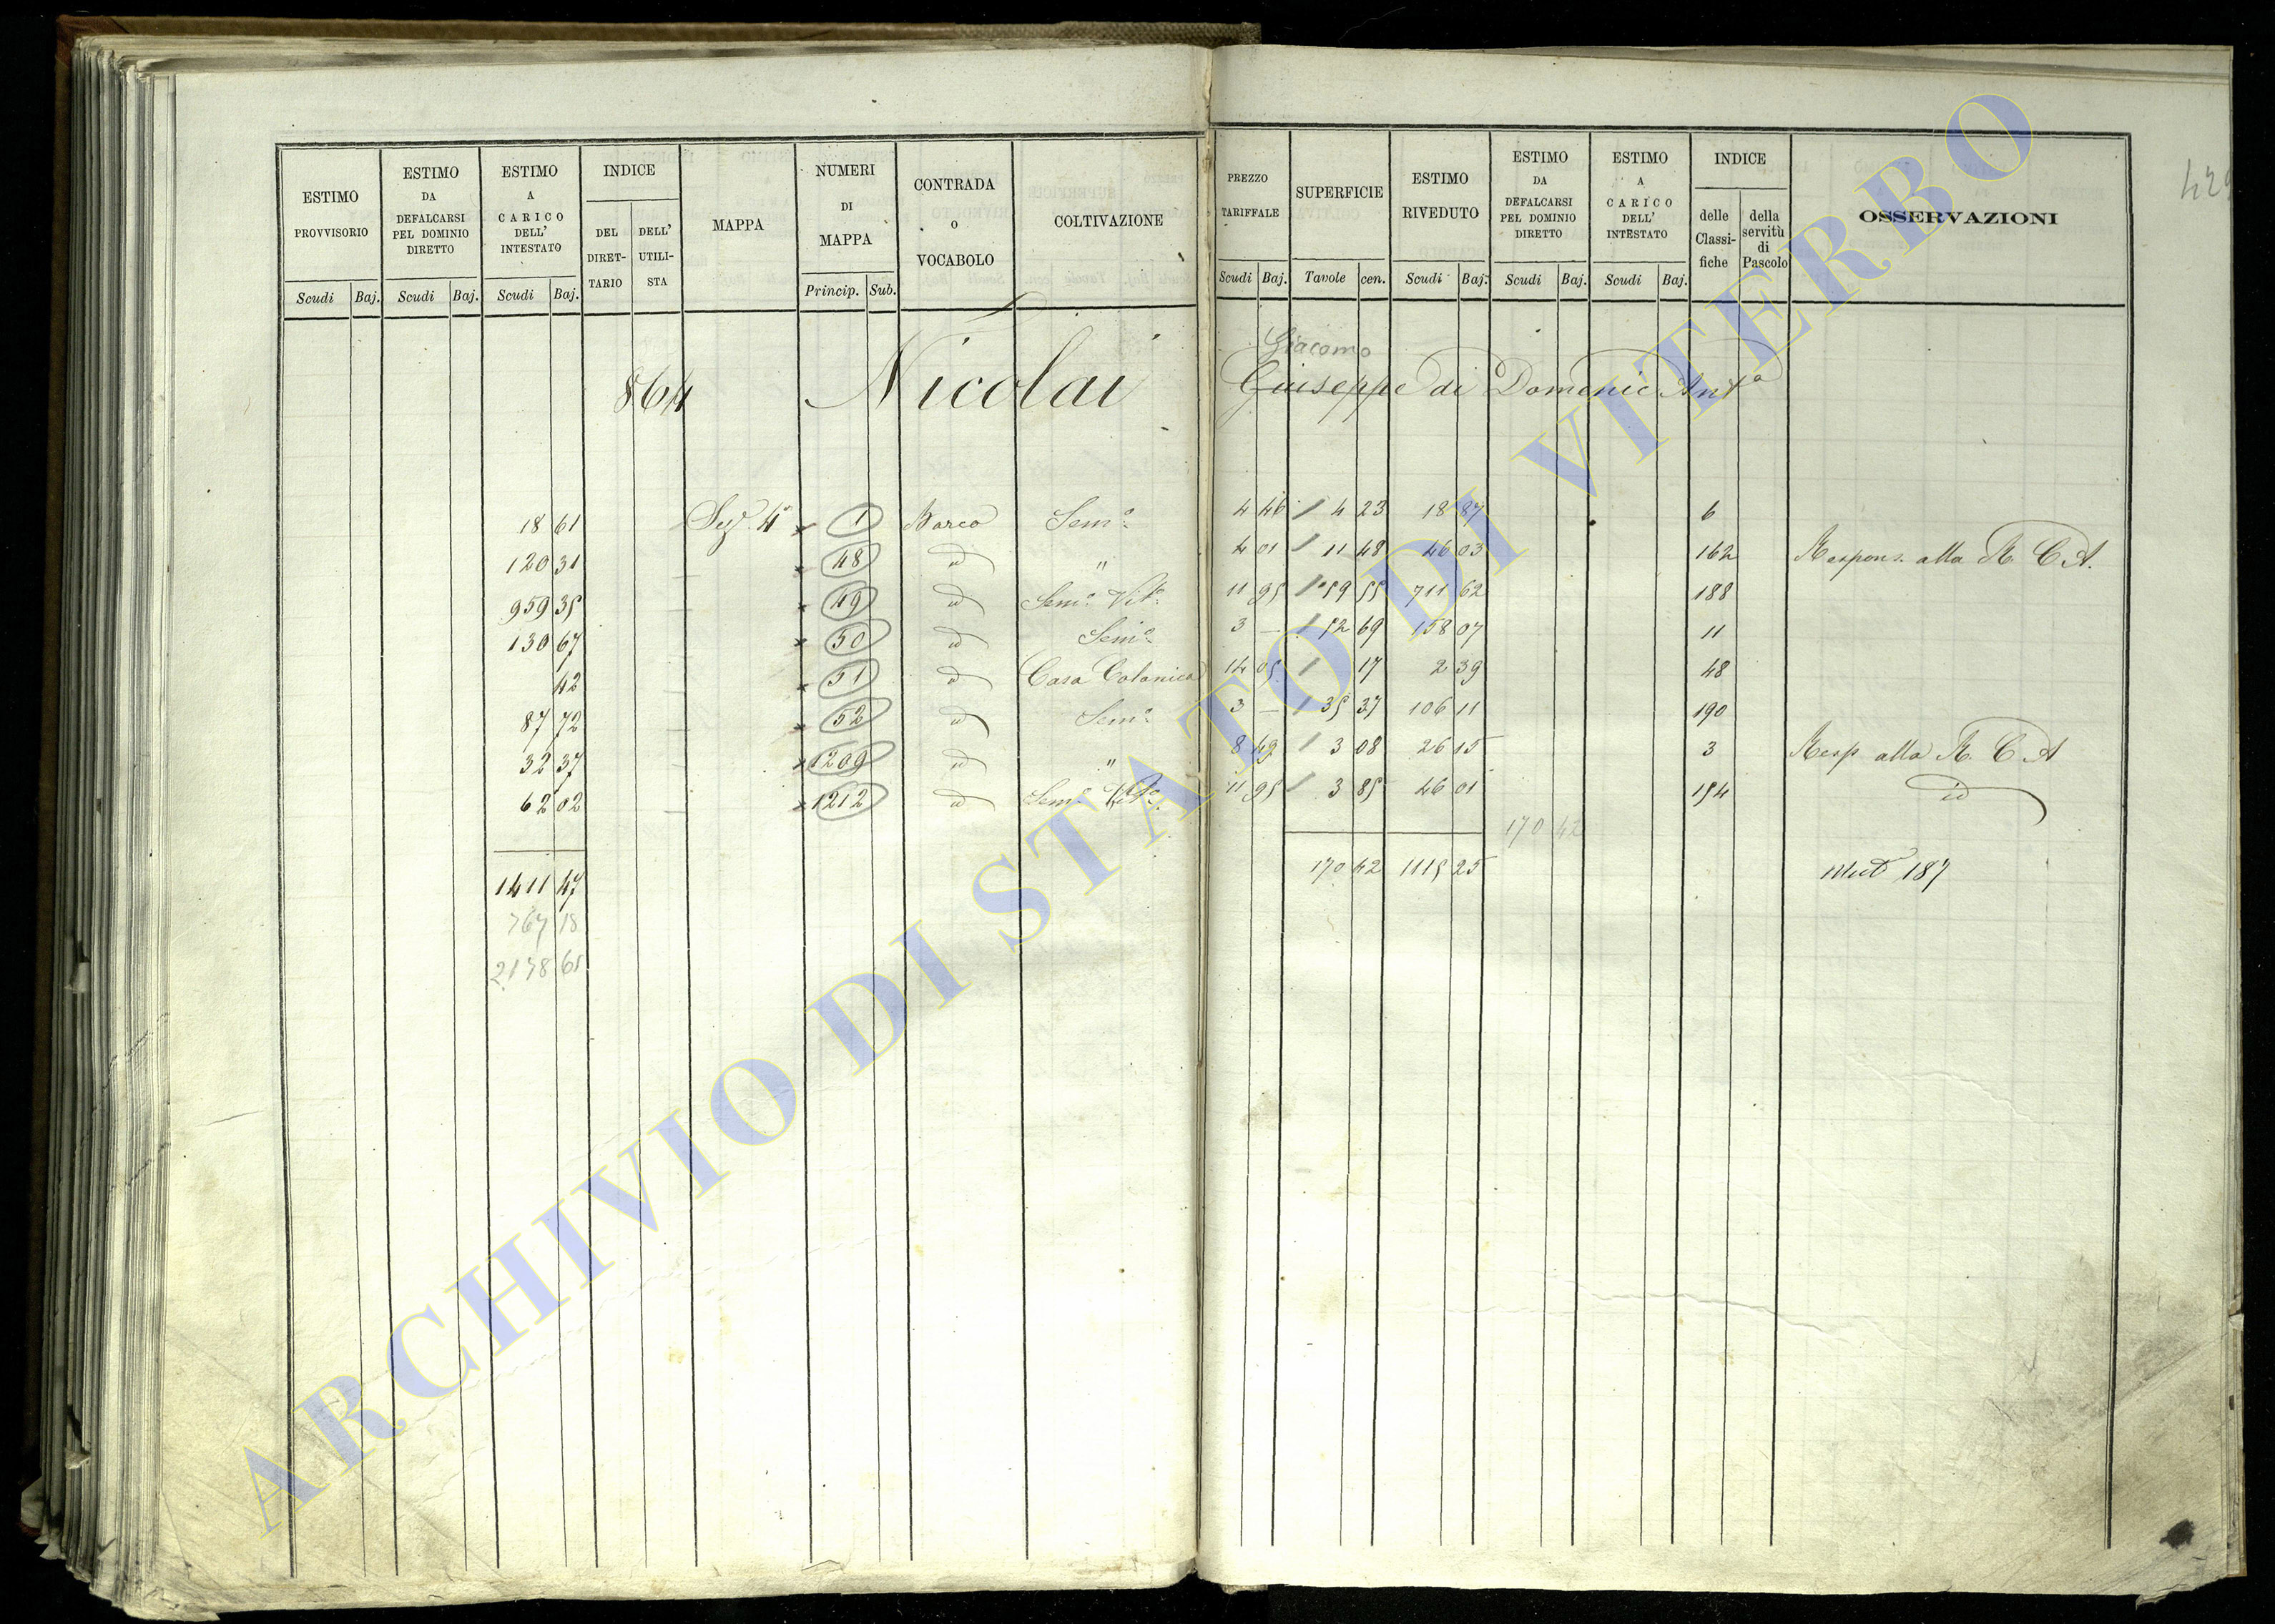 429
ESTIMO PROVVISORIO Scudi Baj.
ESTIMO DA DEFALCARSI PEL DOMINIO DIRETTO Scudi Baj.
ESTIMO A CARICO DELL' INTESTATO Scudi Baj.
INDICE DEL DIRET-TARIO DELL' UTILI-STA
MAPPA
NUMERI DI MAPPA Princip. Sub.
CONTRADA O VOCABOLO
COLTIVAZIONE
PREZZO TARIFFALE Scudi Baj.
SUPERFICIE Tavole cen.
ESTIMO RIVEDUTO Scudi Baj.
ESTIMO DA DEFALCARSI PEL DOMINIO DIRETTO Scudi Baj.
ESTIMO A CARICO DELL' INTESTATO Scudi Baj.
INDICE delle Classi-fiche della servitù di Pascolo
OSSERVAZIONI
Giacomo
864 Nicolai Giuseppe di Domenic Antº
18 61 Sezº 4ª 1 Barco Semº 4 46 4 23 18 87 6
120 31 48 id " 4 01 11 48 46 03 162 Respons. alla R. C. A.
959 35 49 id Semº Vitº 11 95 59 55 711 62 188
130 67 50 id Semº 3 — 52 69 158 07 11
42 51 id Casa Colonica 14 05 17 2 39 48
87 72 52 id Semº 3 — 35 37 106 11 190
32 37 1209 id " 8 49 3 08 26 15 3 Resp alla R. C. A
62 02 1212 id Semº Vitº 11 95 3 85 46 01 154 id
170 42
1411 47 170 42 1115 25 Mut 187
767 18
2178 61
ARCHIVIO DI STATO DI VITERBO